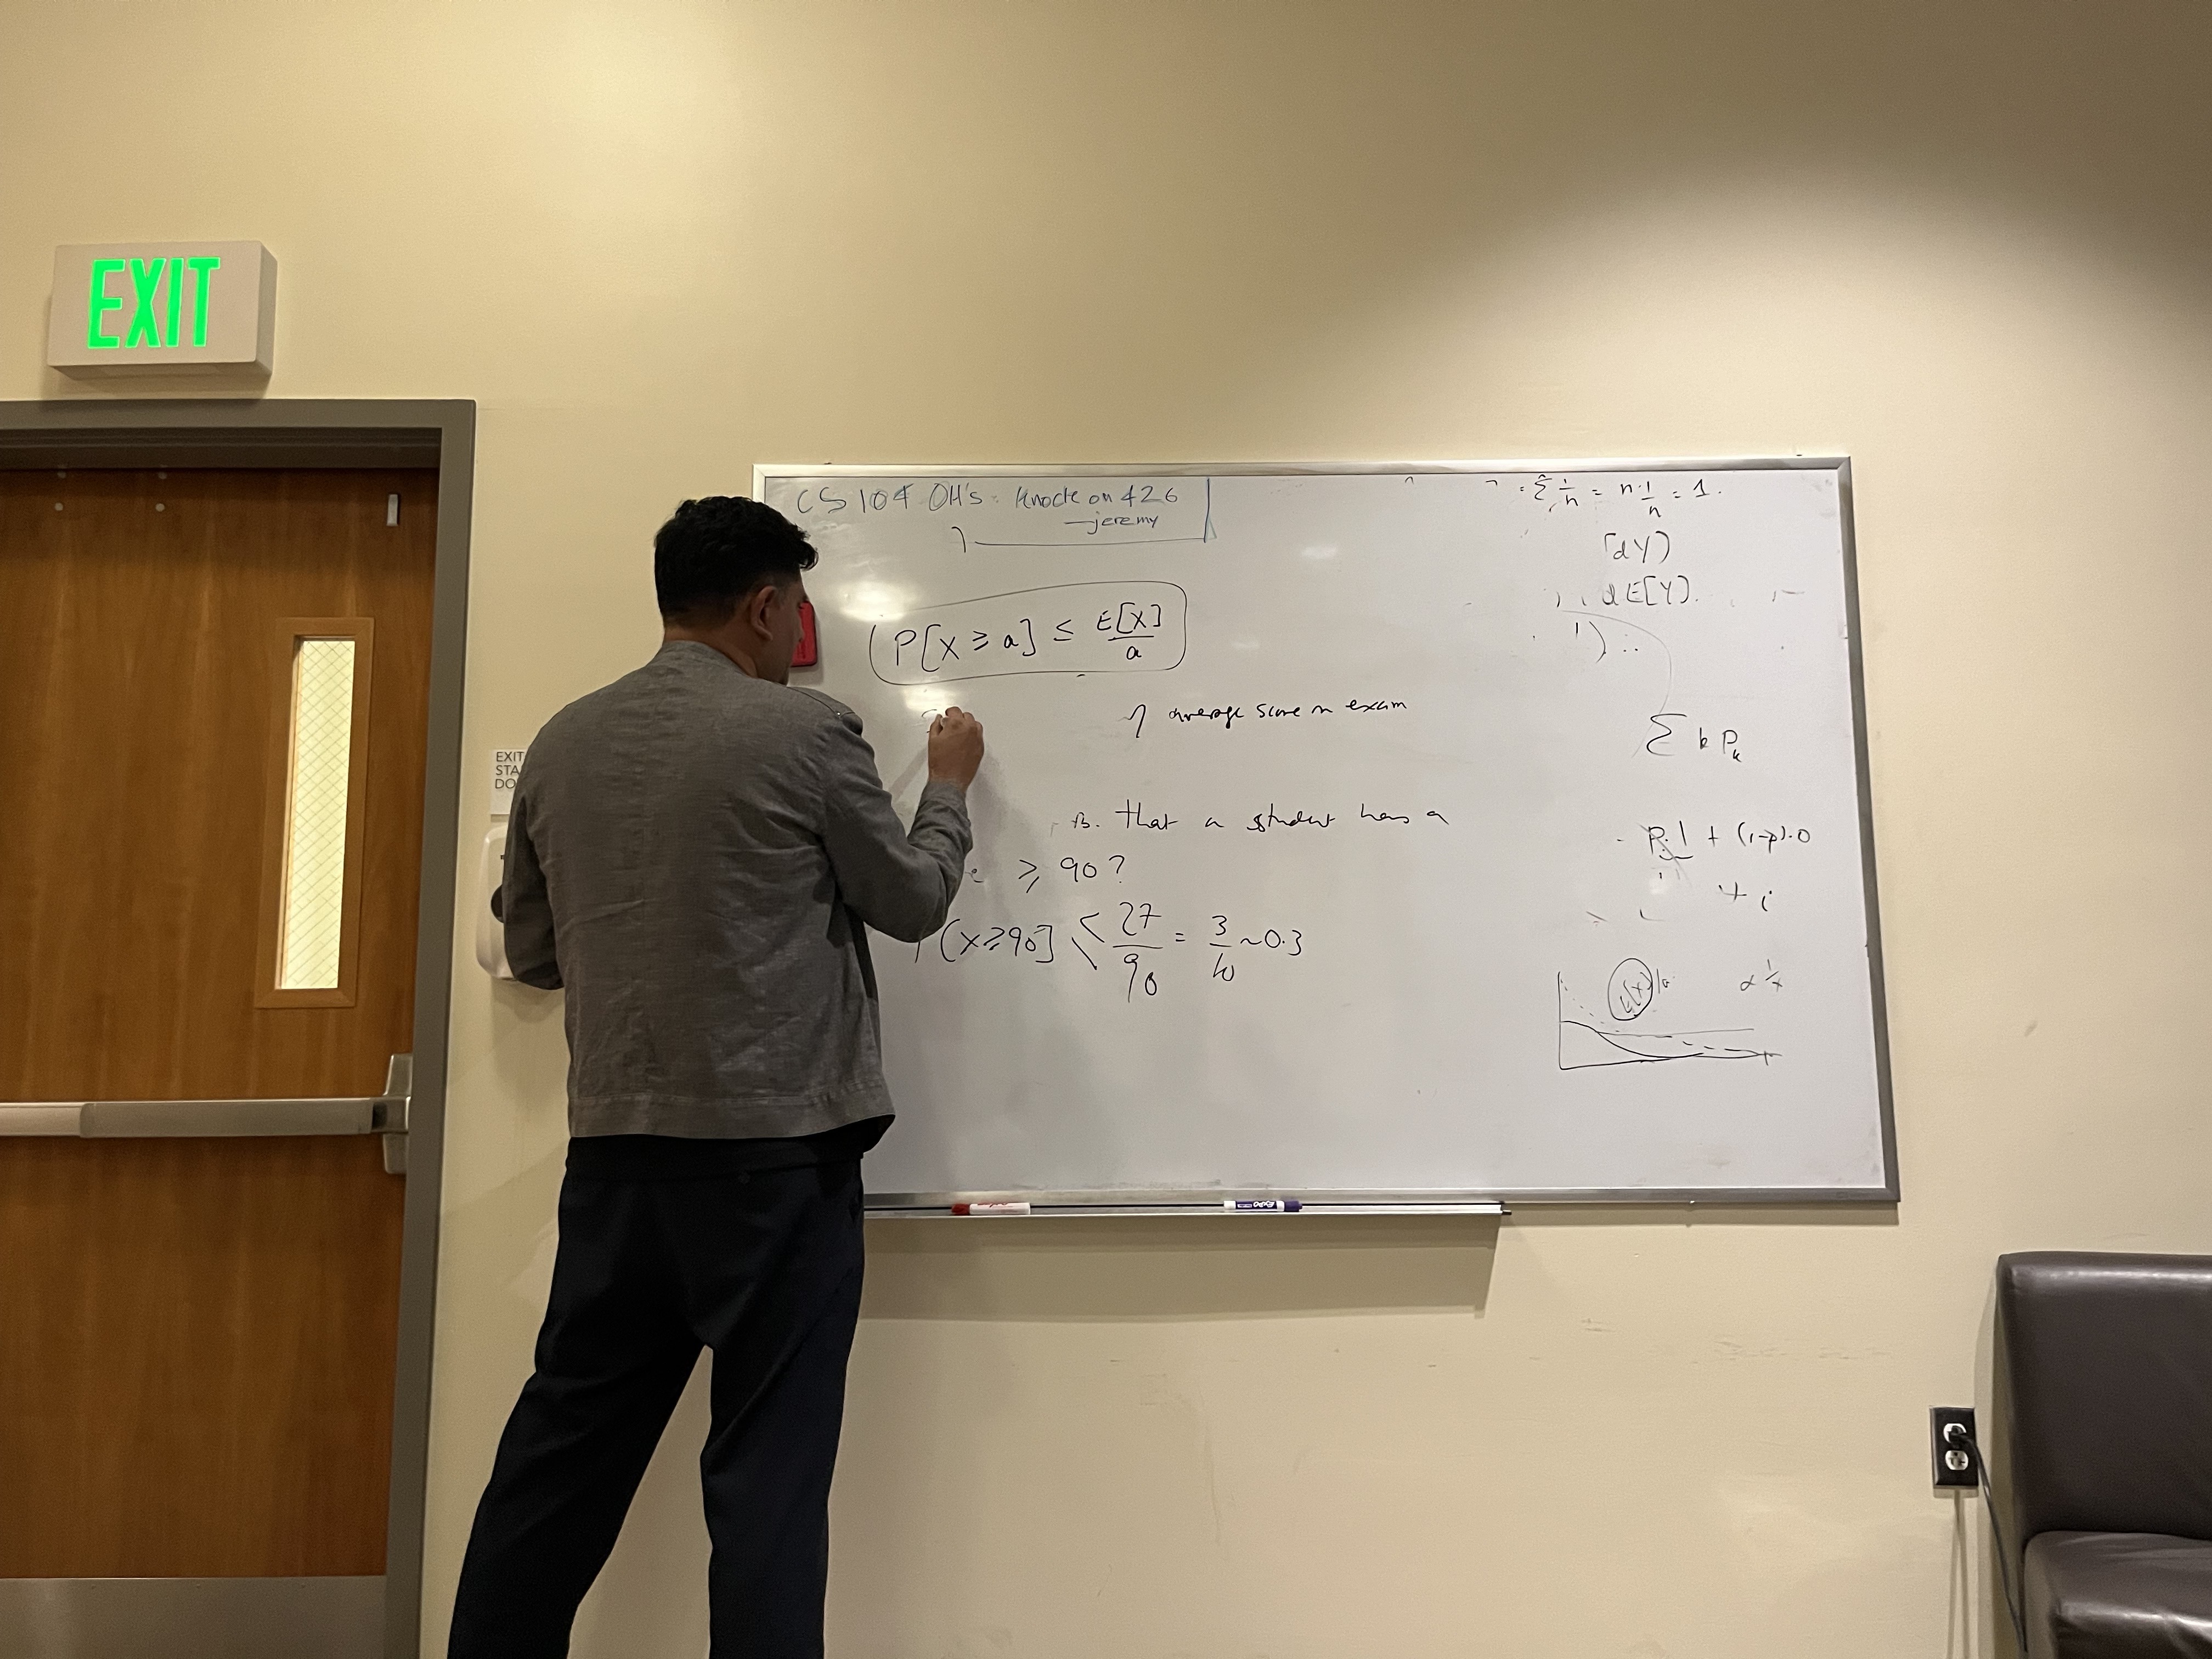 EXIT
EXIT
CS 104 OH's: Knock on 426
—jeremy
P[X ≥ a] ≤ E[X] / a
average score on exam
that a student has a
≥ 90?
(X ≥ 90] ≤ 27/90 = 3/10 ~ 0.3
= Σ 1/n = n·1/n = 1.
dY)
dE[Y].
Σ k Pk
p·1 + (1-p)·0
+ i
E[X]/a
α 1/x